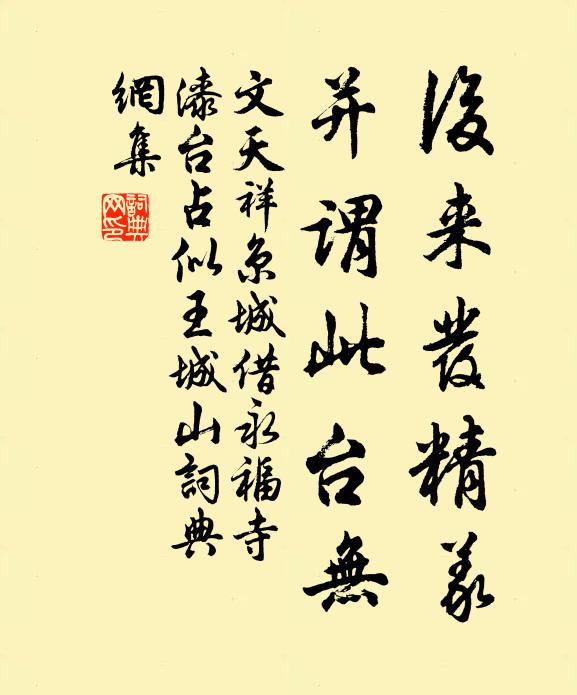 後来發精義
并謂此台無
文天祥京城借永福寺
漆台占似王城山詞典
網集
詞典
网印